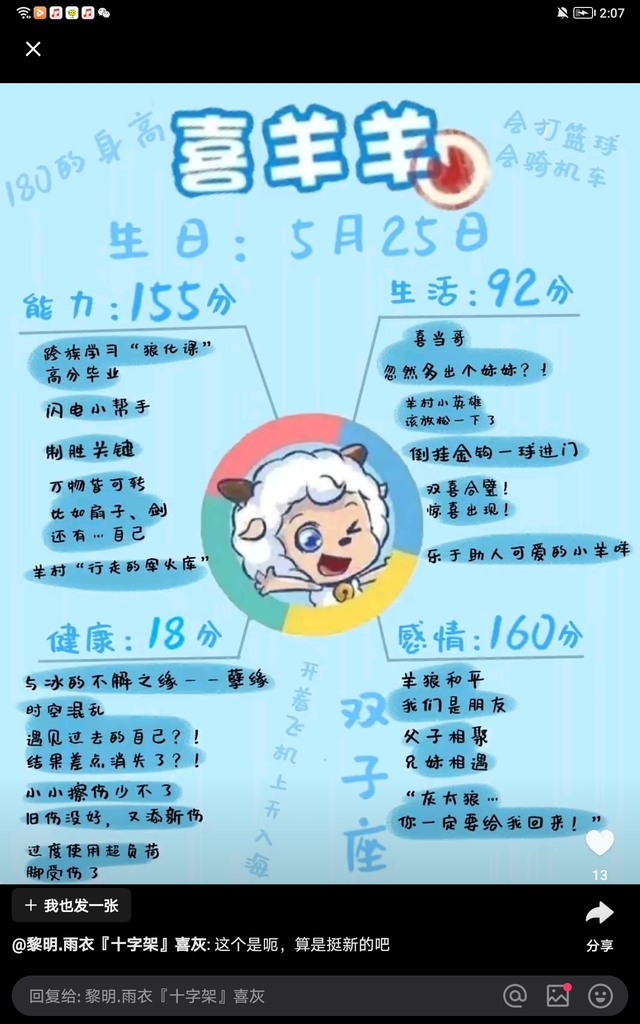 2:07
180的身高
喜羊羊
会打篮球
会骑机车
生日：5月25日
能力：155分
跨族学习“狼化课”
高分毕业
闪电小帮手
制胜关键
万物皆可转
比如扇子、剑
还有…自己
羊村“行走的军火库”
生活：92分
喜当哥
忽然多出个妹妹？！
羊村小英雄
该放松一下了
倒挂金钩一球进门
双喜合璧！
惊喜出现！
乐于助人可爱的小羊咩
健康：18分
与冰的不解之缘——孽缘
时空混乱
遇见过去的自己？！
结果差点消失了？！
小小擦伤少不了
旧伤没好，又添新伤
过度使用超负荷
脚受伤了
开着飞机上天入海
双子座
感情：160分
羊狼和平
我们是朋友
父子相聚
兄妹相遇
“灰太狼…
你一定要给我回来！”
13
+ 我也发一张
@黎明.雨衣『十字架』喜灰: 这个是呃，算是挺新的吧
分享
回复给: 黎明.雨衣『十字架』喜灰